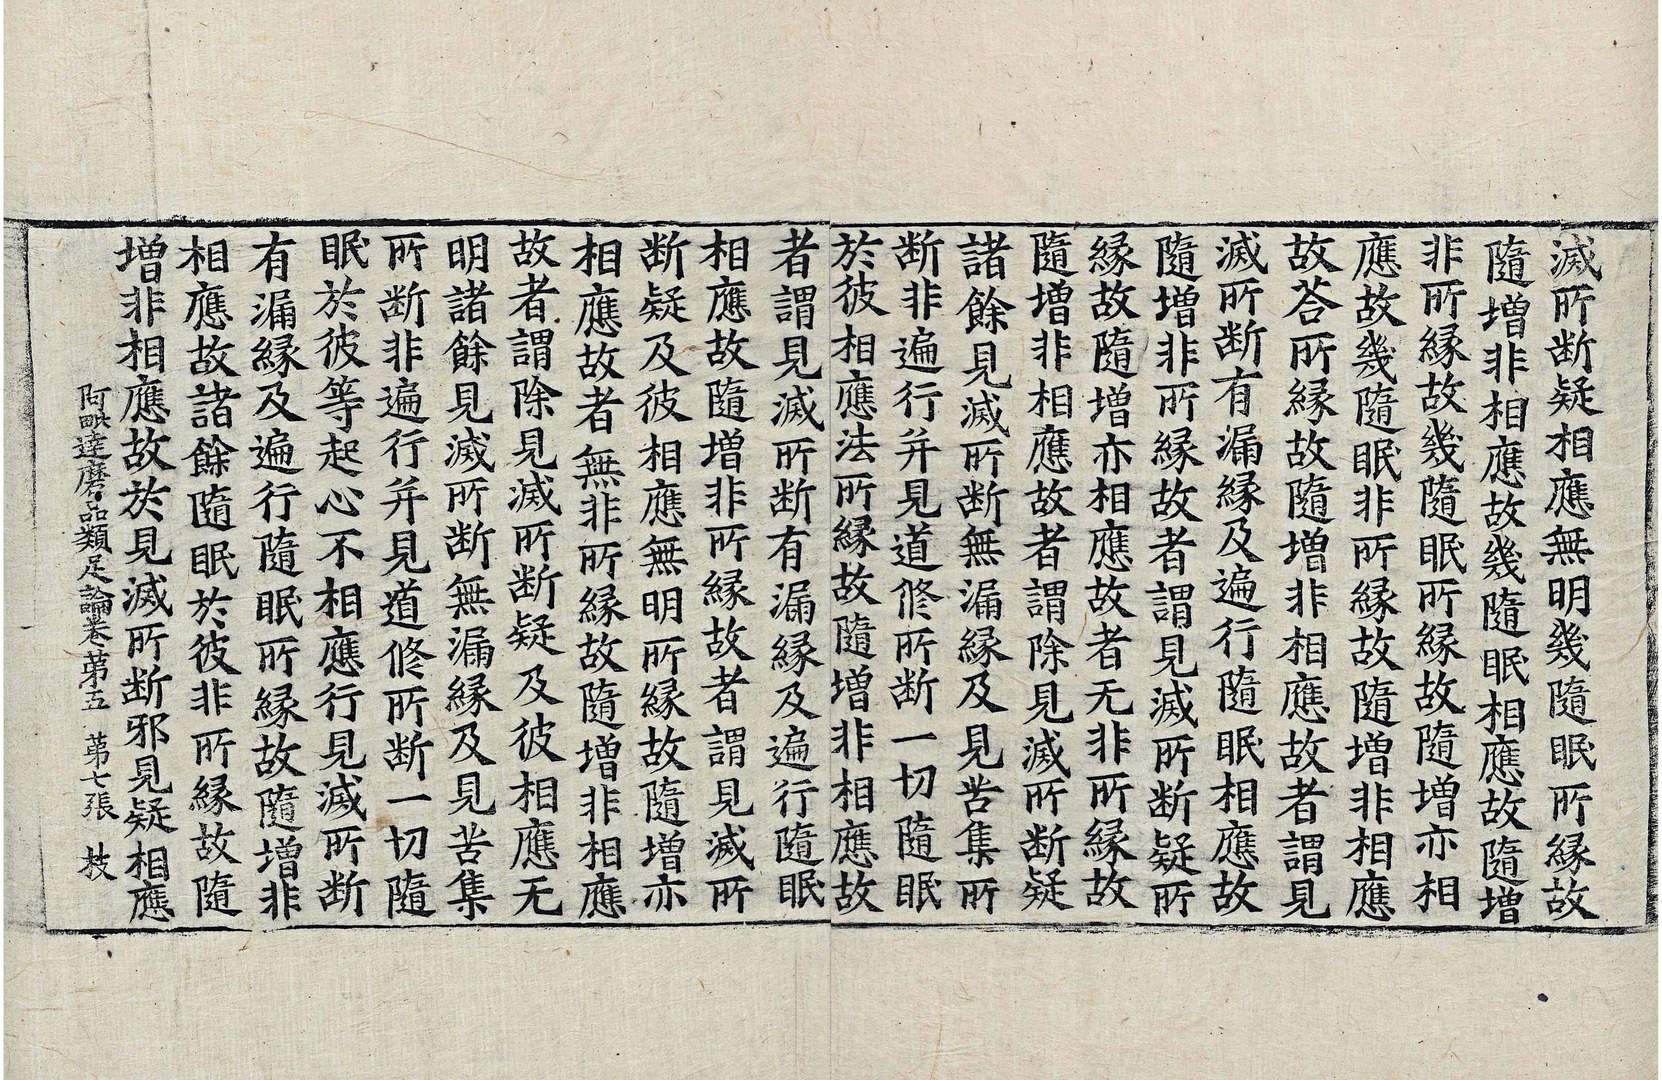 滅所断疑相應無明幾隨眠所緣故
隨增非相應故幾隨眠相應故隨增
非所緣故幾隨眠所緣故隨增亦相
應故幾隨眠非所緣故隨增非相應
故荅所緣故隨增非相應故者謂見
滅所断有漏緣及遍行隨眠相應故
隨增非所緣故者謂見滅所断疑所
緣故隨增亦相應故者无非所緣故
隨增非相應故者謂除見滅所断疑
諸餘見滅所断無漏緣及見苦集所
断非遍行并見道修所断一切隨眠
於彼相應法所緣故隨增非相應故
者謂見滅所断有漏緣及遍行隨眠
相應故隨增非所緣故者謂見滅所
断疑及彼相應無明所緣故隨增亦
相應故者無非所緣故隨增非相應
故者謂除見滅所断疑及彼相應无
明諸餘見滅所断無漏緣及見苦集
所断非遍行并見道修所断一切隨
眠於彼等起心不相應行見滅所断
有漏緣及遍行隨眠所緣故隨增非
相應故諸餘隨眠於彼非所緣故隨
增非相應故於見滅所断邪見疑相應
阿毗達磨品類足論卷第五 第七張 枝